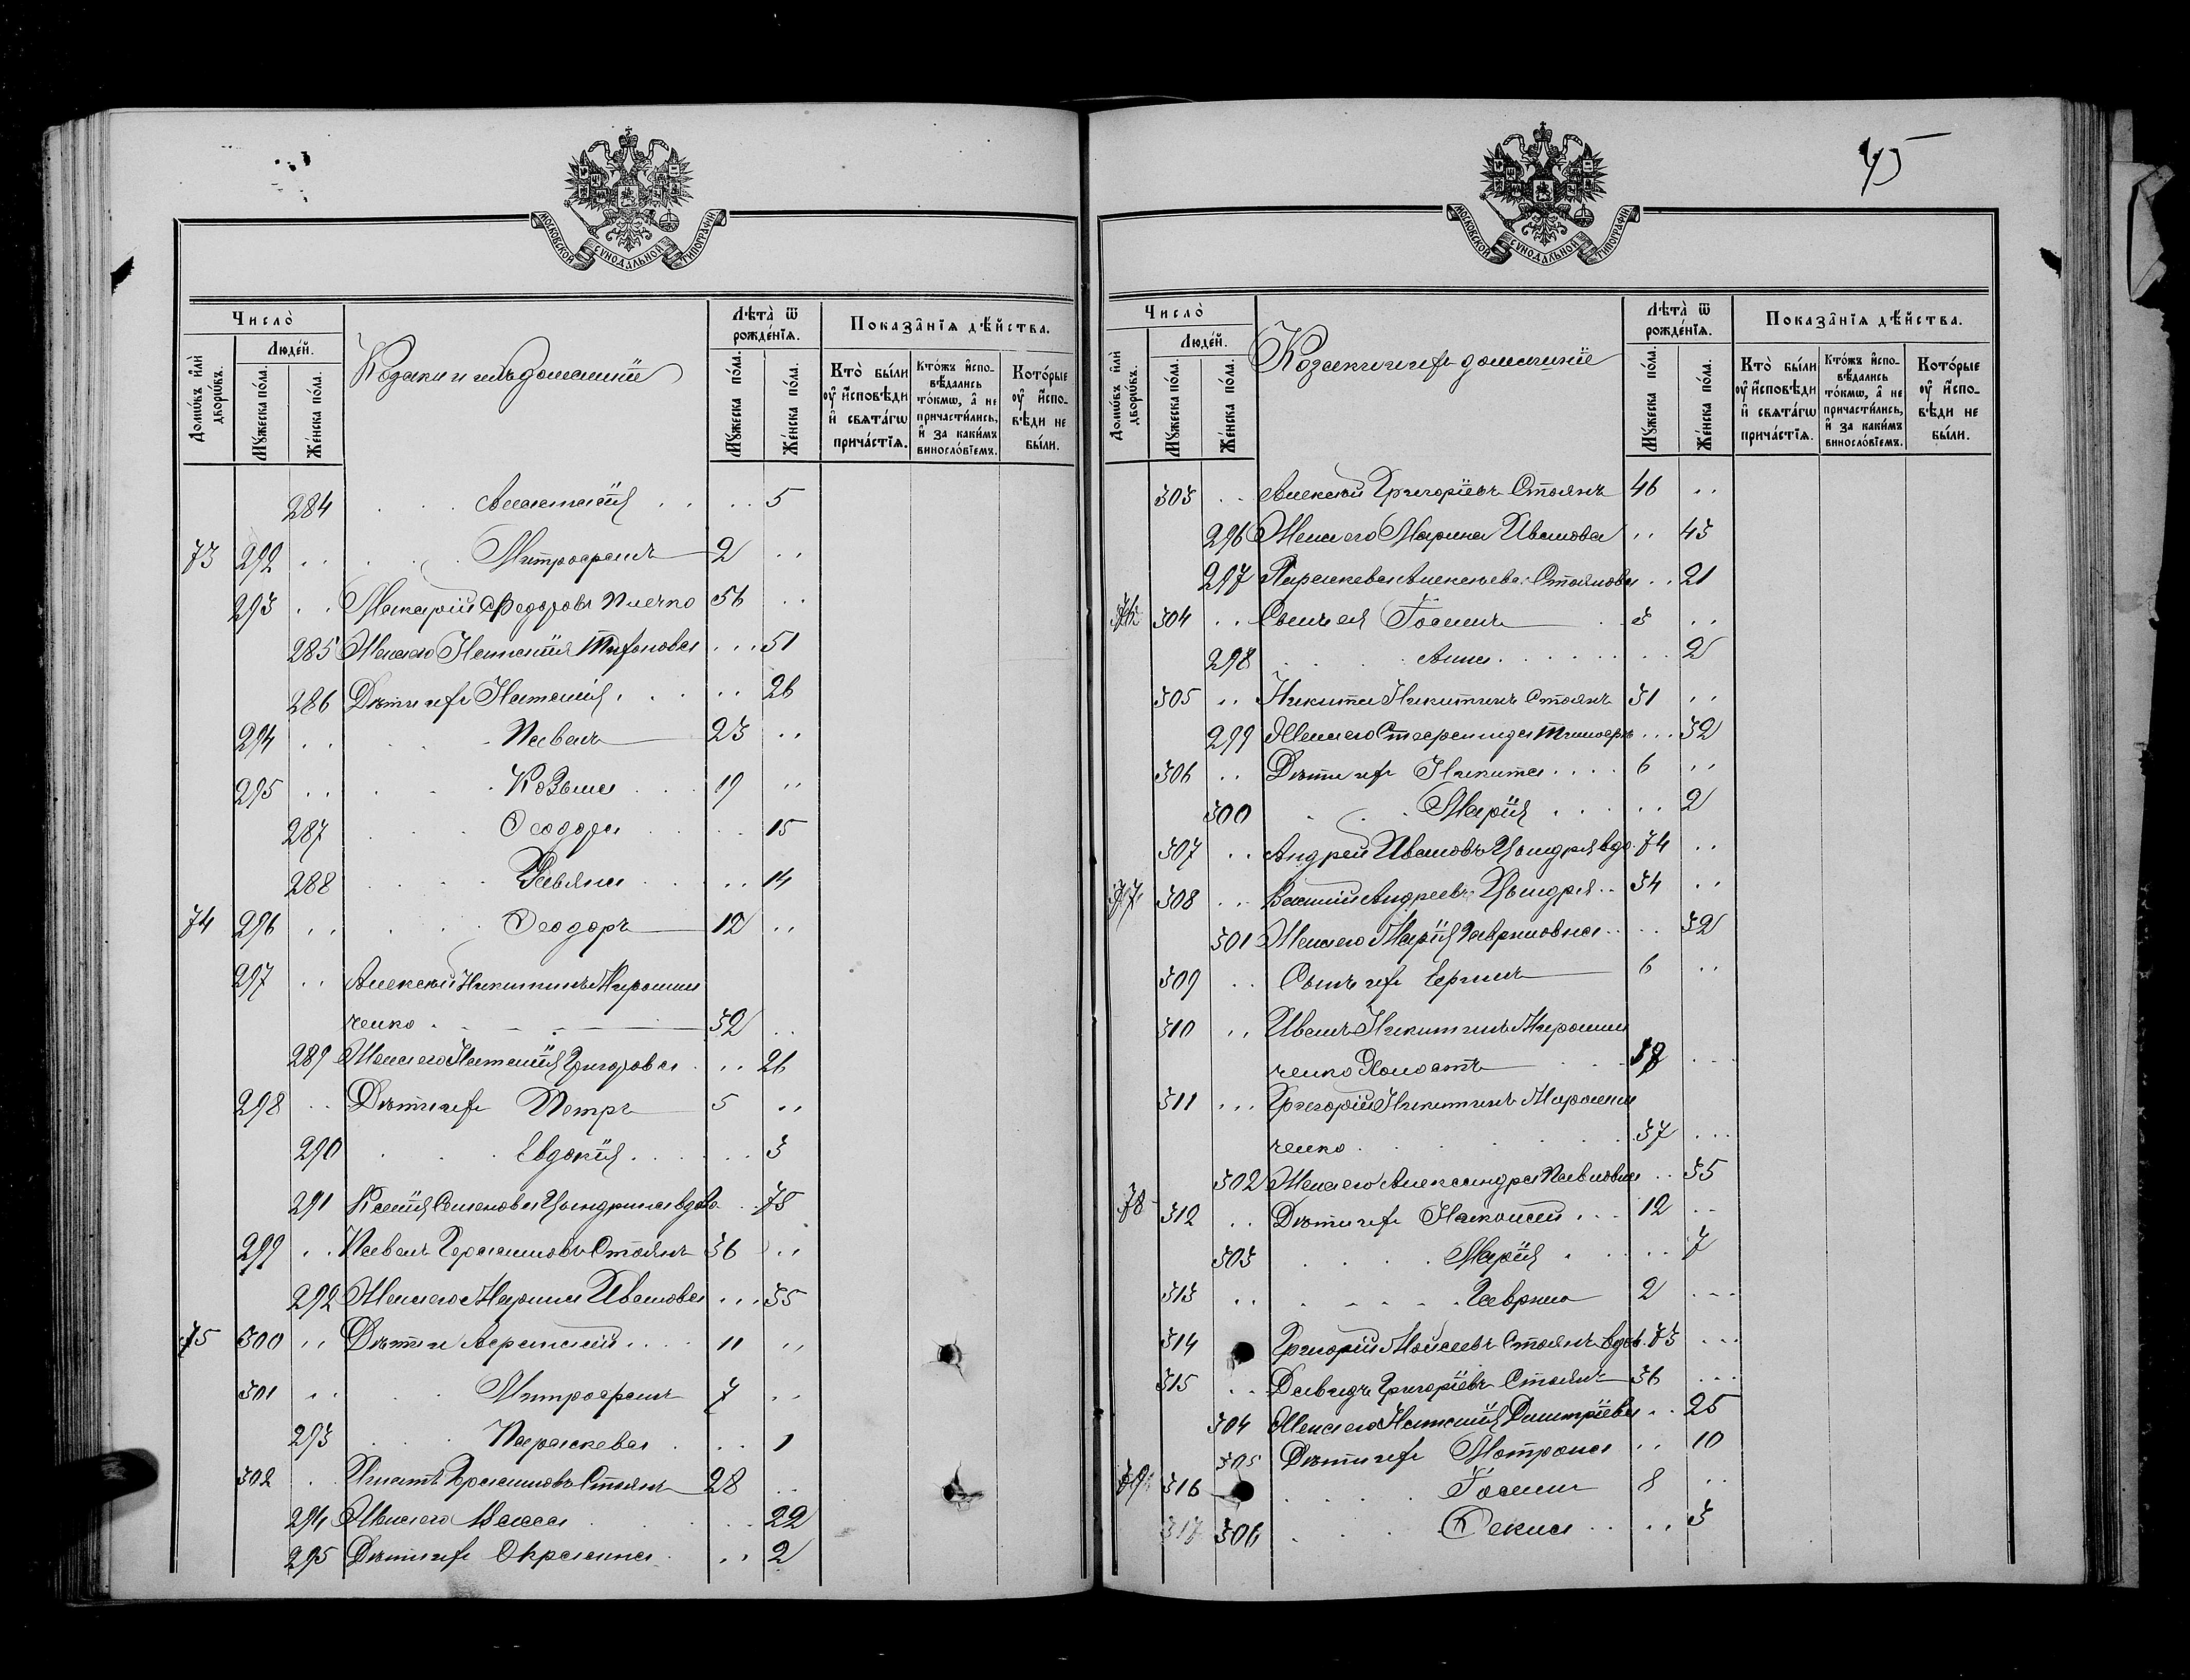 МОСКОВСКОЙ СѴНОДАЛЬНОЙ ТИПОГРАФІИ
Число̀
Домѡ́въ и҆лѝ дворѡ́въ.
Люде́й.
Мꙋ́жеска по́ла.
Же́нска по́ла.
Козаки и ихъ домашніе
Лѣта̀ ѿ рожде́нїѧ.
Мꙋ́жеска по́ла.
Же́нска по́ла.
Показа̑нїѧ дѣ́йства.
Кто̀ бы́ли ᲂу҆ и҆́сповѣди и҆ свѧта́гѡ прича́стїѧ.
Кто́жъ и҆сповѣ́дались то́кмѡ, а҆ не причасти́лись, и҆ за каки́мъ винословїемъ.
Кото́рые ᲂу҆ и҆́сповѣди не бы́ли.
284 Анастасія 5
73 292 Митрофанъ 2
293 Макарій Ѳедоровъ 56
285 Жена его Наталія 51
286 Дѣти ихъ Наталія 26
294 Павелъ 23
295 Козьма 19
287 Ѳеодора 15
288 14
74 296 Ѳеодоръ 12
297 Алексѣй Никитинъ Мирошни
ченко 32
289 Жена его Наталія Григорова 26
298 Дѣти ихъ Петръ 5
290 Евдокія 3
291 Ксенія Семенова Цындрина вдова 75
299 Павелъ Герасимовъ Стоянъ 36
292 Жена его Марина Иванова 35
75 300 Дѣти и Афанасій 11
301 Митрофанъ 7
293 Параскева 1
302 Игнатъ Герасимовъ Стоянъ 28
294 Жена его 22
295 Дѣти ихъ 2
45
МОСКОВСКОЙ СѴНОДАЛЬНОЙ ТИПОГРАФІИ
Число̀
Домѡ́въ и҆лѝ дворѡ́въ.
Люде́й.
Мꙋ́жеска по́ла.
Же́нска по́ла.
Козаки и ихъ домашніе
Лѣта̀ ѿ рожде́нїѧ.
Мꙋ́жеска по́ла.
Же́нска по́ла.
Показа̑нїѧ дѣ́йства.
Кто̀ бы́ли ᲂу҆ и҆́сповѣди и҆ свѧта́гѡ прича́стїѧ.
Кто́жъ и҆сповѣ́дались то́кмѡ, а҆ не причасти́лись, и҆ за каки́мъ винословїемъ.
Кото́рые ᲂу҆ и҆́сповѣди не бы́ли.
303 Алексѣй Григоріевъ Стоянъ 46
296 Жена его Марина Иванова 43
297 Параскева Алексѣева Стоянова 21
76 304 Сынъ ея Іоаннъ 3
298 Анна 2
305 Никита Никитинъ Стоянъ 31
299 Жена его Стефанида 32
306 Дѣти ихъ Никита 6
300 Марія 2
307 Андрей Ивановъ Цындря вдо. 74
77 308 Василій Андреевъ Цындря 34
301 Жена его Марія Гавриловна 32
309 Сынъ ихъ 6
310 Иванъ Никитинъ Мирошни
ченко Холостъ
311 Григорій Никитинъ Мирошни
ченко 37
302 Жена его Александра Павловна 35
78 312 Дѣти ихъ 12
303 Марія 7
313 Гавріилъ 2
314 Григорій Моисеевъ Стоянъ вдов. 73
315 Давидъ Григоріевъ Стоянъ 36
304 Жена его Наталія Димитріева 25
305 Дѣти ихъ Матрона 10
79 316 Іоаннъ 8
317 306 Ѳекла 3